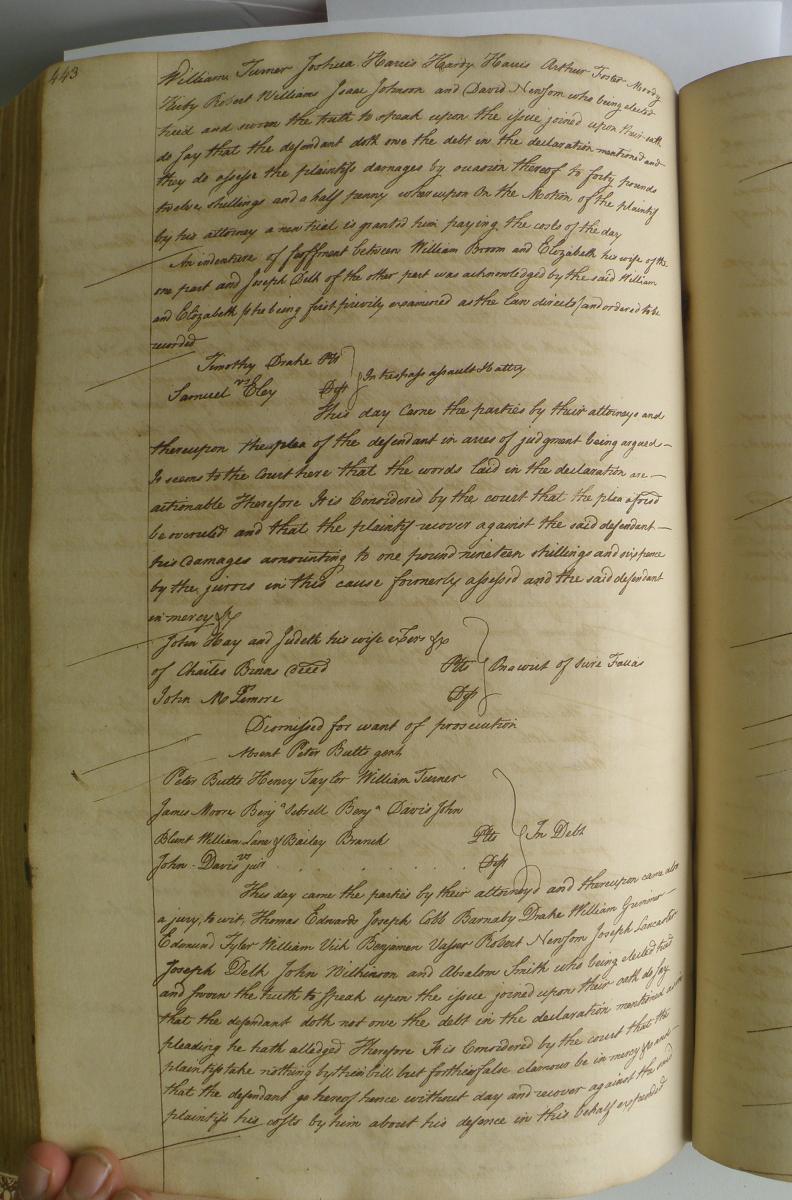 443
William Turner Joshua Harris Hardy Harris Arthur Foster Moody
Kirby Robert Williams Isaac Johnson and David Newsom who being elected
tried and sworn the truth to speak upon the issue joined upon their oath
do say that the defendant doth owe the debt in the declaration mentioned and
they do assess the plaintifs damages by ocasion thereof to forty pounds
twelve shillings and a half penny whereupon On the Motion of the plaintif
by his attorney a new trial is granted him paying the costs of the day
An indenture of feoffment between William Broom and Elizabeth his wife of the
one part and Joseph Delk of the other part was acknowledged by the said William
and Elizabeth she being first privily examined as the law directs and ordered to be
recorded
Timothy Drake Plt
vs
Samuel Eley Deft
In trespass assault & battry
This day came the parties by their attorneys and
thereupon the plea of the defendant in arres of judgment being argued
It seems to the Court here that the words laid in the declaration are
actionable Therefore It is Considered by the court that the plea afsd
be overuled and that the plaintif recover against the said defendant
his Damages amounting to one pound nineteen shillings and six pence
by the jurors in this cause formerly assessed and the said defendant
in mercy &c
John Hay and Judeth his wife exors &c
of Charles Binns deced Plts
vs
John McLemore Deft
On a writ of Scire Facias
Dismissed for want of prosecution
Absent Peter Butts gent
Peter Butts Henry Taylor William Turner
James Moore Benja Sebrell Benja Davis John
Blunt William Lane & Bailey Branch Plts
vs
John Davis junr Deft
In Debt
This day came the parties by their attorneys and thereupon came also
a jury, to wit, Thomas Edwards Joseph Cobb Barnaby Drake William
Edmund Tyler William Vick Benjamen Vasser Robert Newsom Joseph Lancaster
Joseph Delk John Wilkinson and Absalom Smith who being elected tried
and sworn the truth to speak upon the issue joined upon their oath do say
that the defendant doth not owe the debt in the declaration mentioned as in
pleading he hath alledged Therefore It is Considered by the court that the
plaintifs take nothing by their bill but for their false clamour be in mercy &c and
that the defendant go hereof hence without day and recover against the said
plaintifs his costs by him about his defence in this behalf expended